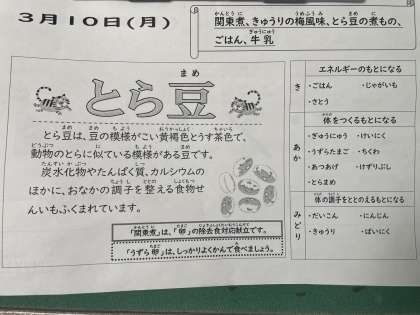 3月10日(月)
関東煮、きゅうりの梅風味、とら豆の煮もの、
ごはん、牛乳
とら豆
とら豆は、豆の模様がこい黄褐色とうす茶色で、
動物のとらに似ている模様がある豆です。
炭水化物やたんぱく質、カルシウムの
ほかに、おなかの調子を整える食物せ
んいもふくまれています。
「関東煮」は、「卵」の除去食対応献立です。
「うずら卵」は、しっかりよくかんで食べましょう。
き
エネルギーのもとになる
・ごはん ・じゃがいも
・さとう
あか
体をつくるもとになる
・ぎゅうにゅう ・けいにく
・うずらたまご ・ちくわ
・あつあげ ・けずりぶし
・とらまめ
みどり
体の調子をととのえるもとになる
・だいこん ・にんじん
・きゅうり ・ばいにく